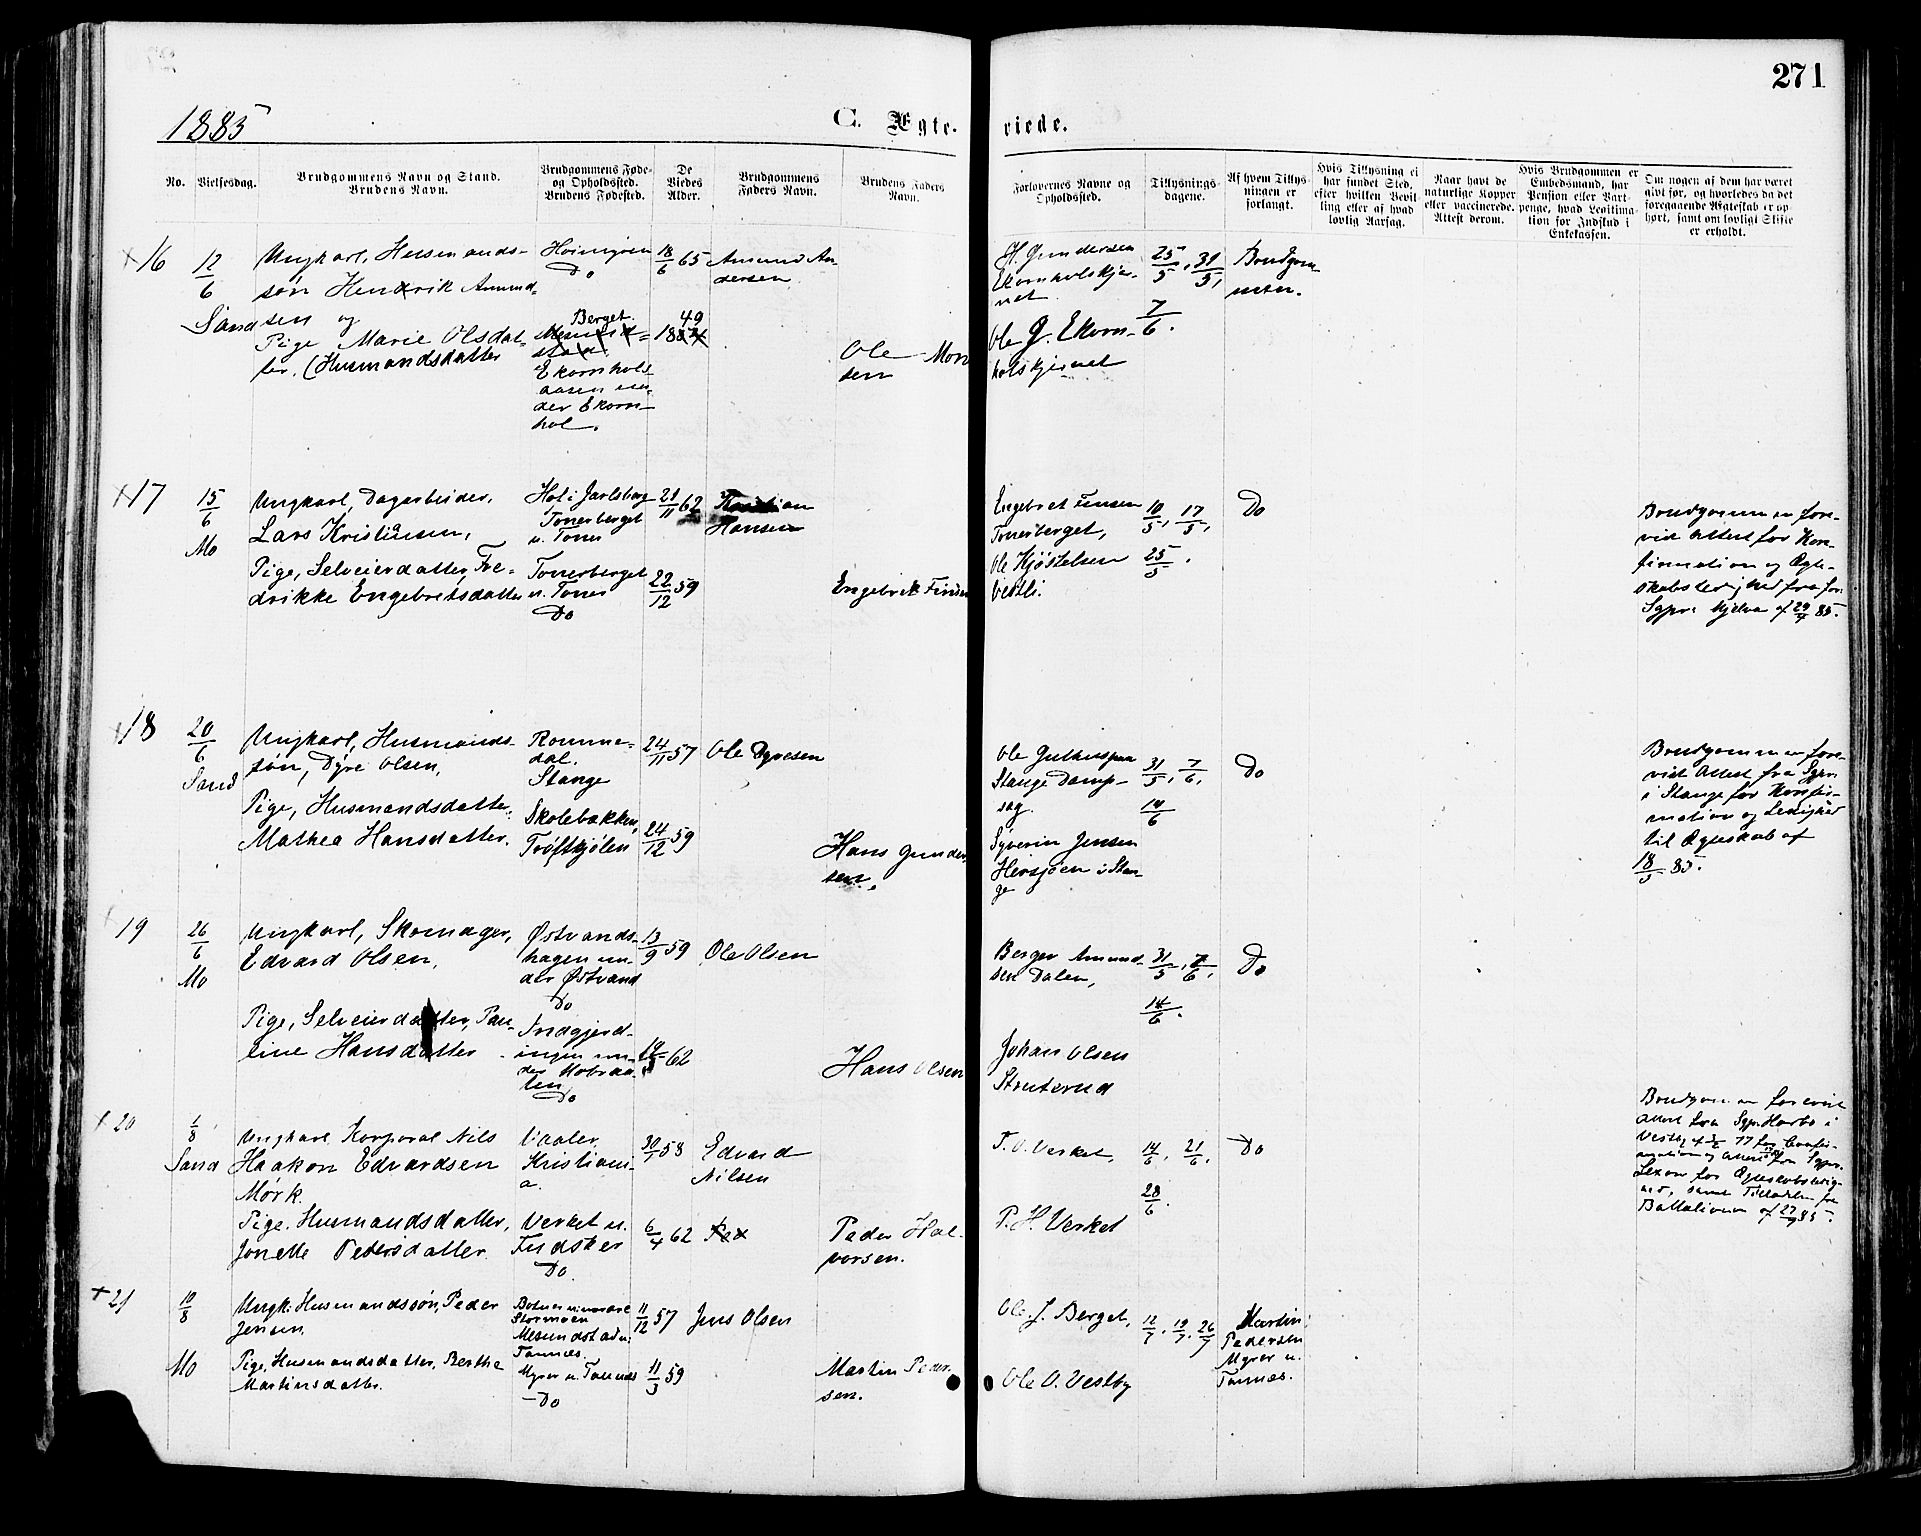 271
1885
C. Ægte-
viede.
No.
Vielsesdag.
Brudgommens Navn og Stand.
Brudens Navn.
Brudgommens Føde-
og Opholdssted.
Brudens Fødested.
De
Viedes
Alder.
Brudgommens
Faders Navn.
Brudens Faders
Navn.
Forlovernes Navne og
Opholdssted.
Tillysnings-
dagene.
Af hvem Tillys-
ningen er
forlangt.
Hvis Tillysning ei
har fundet Sted,
efter hvilken Bevil-
ling eller af hvad
lovlig Aarsag.
Naar havt de
naturlige Kopper
eller vaccinerede.
Attest derom.
Hvis Brudgommen er
Embedsmand, har
Pension eller Vart-
penge, hvad Legitima-
tion for Indskud i
Enkekassen.
Om nogen af dem har været
gift før, og hvorledes da det
foregaaende Ægteskab er op-
hørt, samt om lovligt Skifte
er erholdt.
16
12/6
Sand
Ungkarl, Husmands-
søn Hendrik Amund-
sen og
Pige Marie Olsdat-
ter, (Husmandsdatter
Do
Berget
Ekornhols-
aasen un-
der Ekorn-
hol.
18/6 65
49
Amund An-
dersen
Ole Mon
sen
H. Gundersen
Ole G. Ekorn-
holskjernet
25/5, 31/5,
7/6.
Brudgom-
men.
17
15/6
Mo
Ungkarl, Dagarbeider,
Lars Kristiansen,
Pige, Selveierdatter, Fre-
drikke Engebretsdatter
Hol i Jarlsberg
Tonerberget
u. Toner
Tonerberget
u. Toner
Do
21/11 62
22/12 59
Kristian
Hansen
Engebret Finsen
Engebret Finsen
Tonerberget,
Ole Kjøstelsen
Vestli.
10/5, 17/5,
25/5.
Do
Brudgommen fore-
vist Attest for Kon-
firmation og Ægte-
skabsledighed fra for.
Sgpr. Hjelva af 29/4 85.
18
20/6
Sand
Ungkarl, Husmands-
søn, Dyre Olsen,
Pige, Husmandsdatter,
Mathea Hansdatter.
Romme-
dal.
Stange
Skolebakken,
Trøftkjølen
24/11 57
24/12 59
Ole Dyresen
Hans Gunder-
sen,
Ole Gulhuspaa
Stange Damp-
sag.
Syverin Jensen
Hersjøen i Stan-
ge
31/5, 7/6,
14/6
Do
Brudgommen fore-
vist Attest fra Sgpr.
i Stange for Konfir-
mation og Ledighed
til Ægteskab af
18/5 85.
19
26/6
Mo
Ungkarl, Skomager,
Edvard Olsen,
Pige, Selveierdatter, Pau-
line Hansdatter
Østvands-
hagen un-
der Østvand
Do
Indgjerd-
ingen un-
der
Do
13/9 59
62
Ole Olsen
Hans Olsen
Berger Amund-
sen Dalen,
Johan Olsen
Struterud
31/5, 7/6,
14/6.
Do
20
1/8
Sand
Ungkarl, Korporal Nils
Haakon Edvardsen
Mørk.
Pige, Husmandsdatter,
Jonette Pedersdatter.
Vaaler,
Kristiani-
a.
Verket u.
Fudsker
Do
30/7 58
6/4 62
Edvard
Nilsen
Ped
Peder Hal-
vorsen.
T. O. Verket,
P. H. Verket
14/6, 21/6,
28/6.
Do
Brudgommen forevist
Attest fra Sgpr. Horbo i
Vestby 77 for Confir-
mation og Attest fra Sgpr.
for Ægteskabsledig-
hed, samt Tilladelse fra
Bataljonen af 27/7 85.
21
10/8
Mo
Ungk. Husmandssøn, Peder
Jensen.
Pige, Husmandsdatter, Berthe
Martinsdatter.
Stormoen
Mesundstad u.
Tannæs.
Myrer u. Tannæs
Do
11/12 57
11/3 59
Jens Olsen
Martin Peder-
sen.
Ole J. Berget,
Ole O. Vestby
12/7, 19/7, 26/7
Martin
Pedersen
Myrer u.
Tannæs.